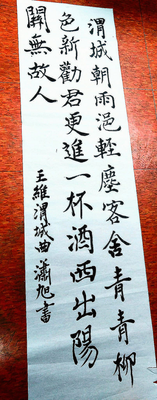 渭城朝雨浥輕塵客舍青青柳
色新勸君更進一杯酒西出陽
關無故人
王維渭城曲瀟旭書